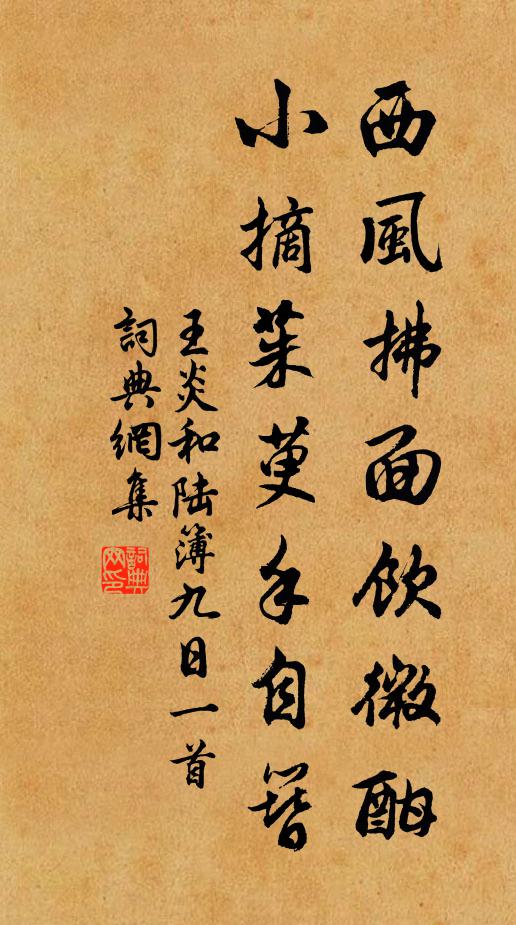 西風拂面飲微酣
小摘茱萸手自簪
王炎和陆簿九日一首
詞典網集
詞典网印